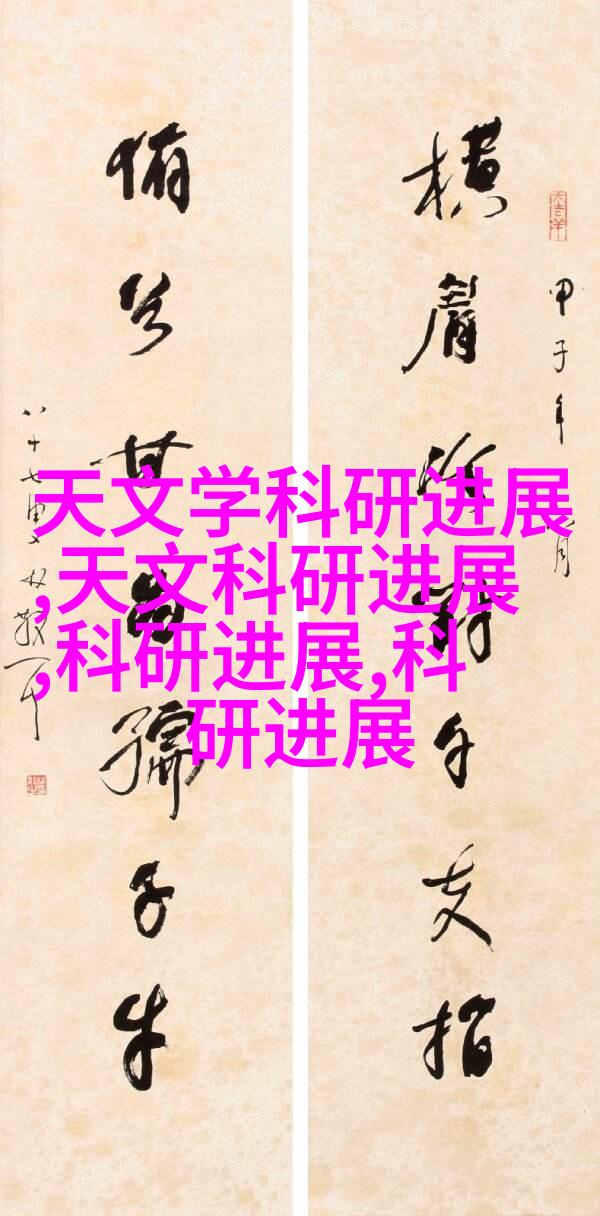 天文学科研进展
,天文科研进展
,科研进展,科
研进展
甲子年
橫眉冷對千夫指
俯首甘為孺子牛
八十七叟林散耳